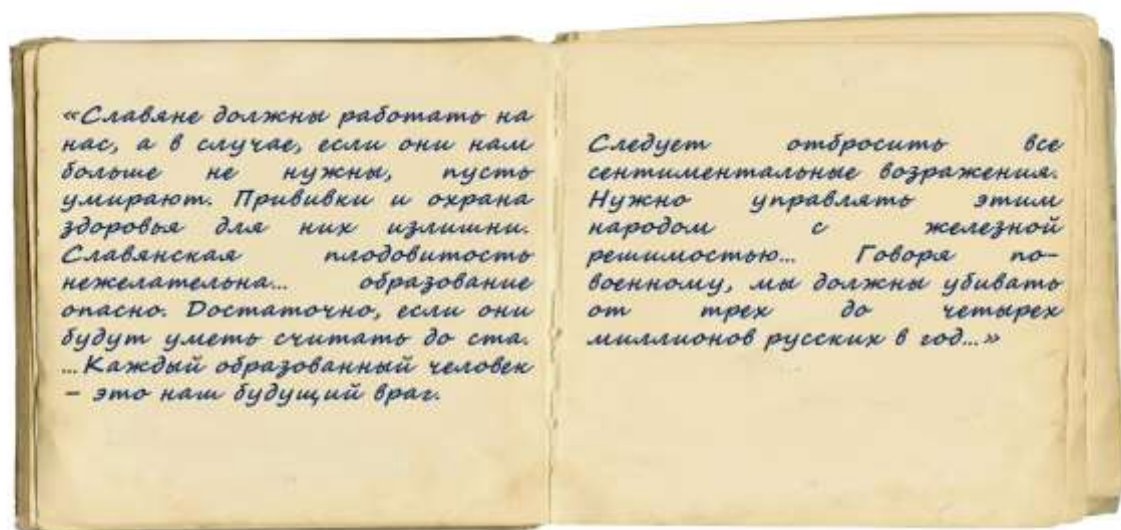 «Славяне должны работать на
нас, а в случае, если они нам
больше не нужны, пусть
умирают. Прививки и охрана
здоровья для них излишни.
Славянская плодовитость
нежелательна... образование
опасно. Достаточно, если они
будут уметь считать до ста.
...Каждый образованный человек
– это наш будущий враг.
Следует отбросить все
сентиментальные возражения.
Нужно управлять этим
народом с железной
решимостью... Говоря по-
военному, мы должны убивать
от трех до четырех
миллионов русских в год...»